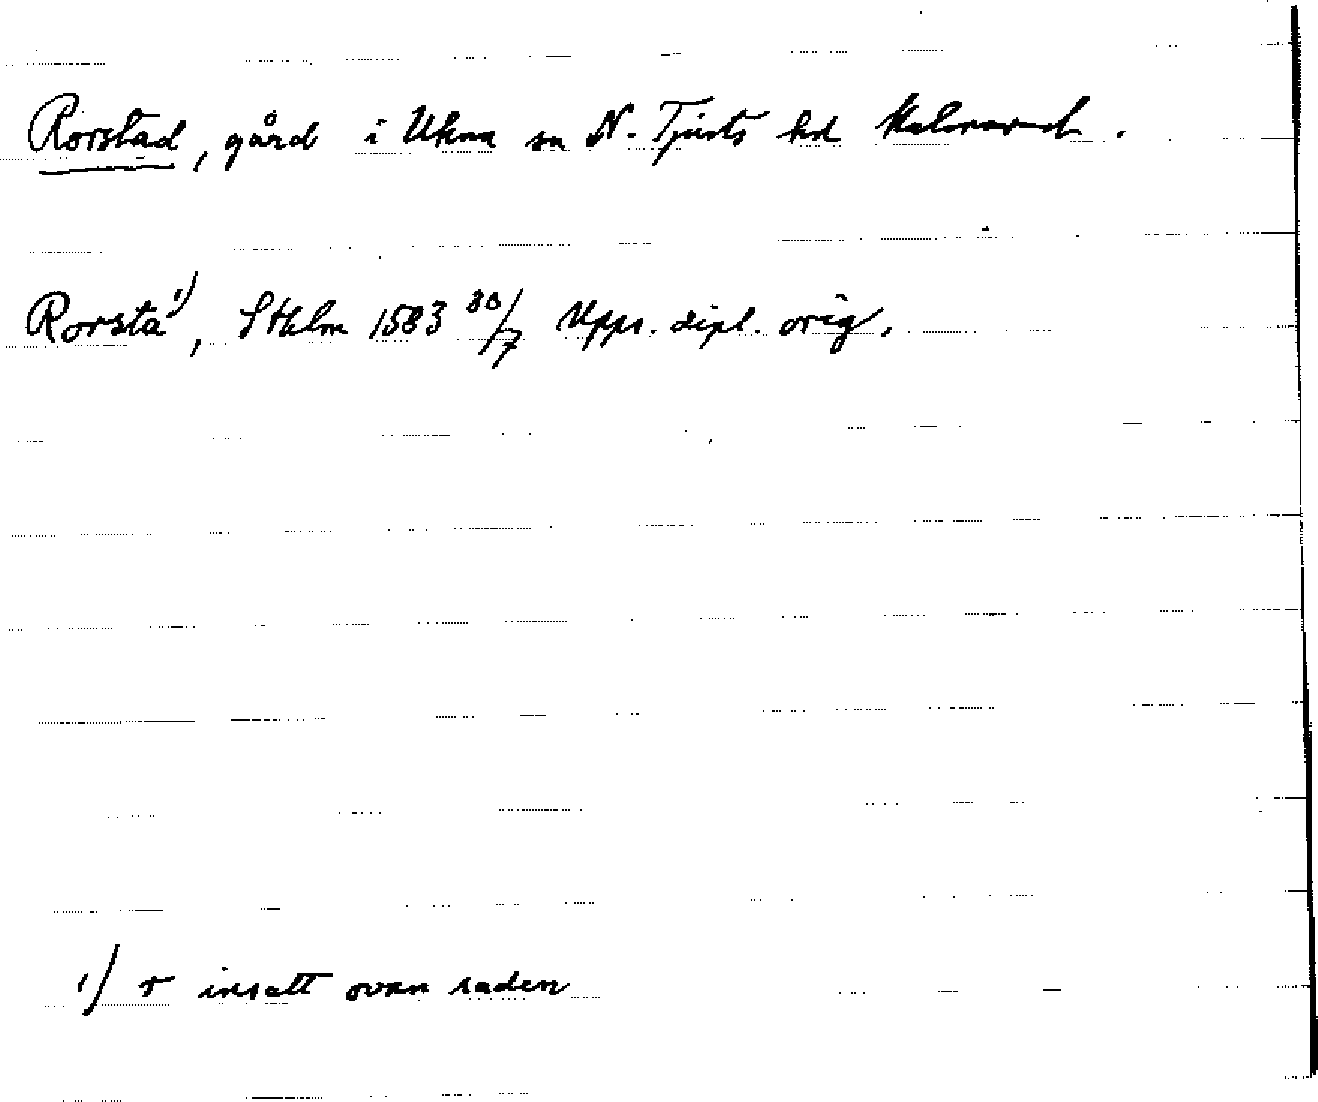 Rorstad, gård i Ukna sn N. Tjusts hd Kalmar
Rorsta¹⁾, Sthlm 1583 30/7 Upps. dipl. orig.
¹⁾ r insatt ovan raden